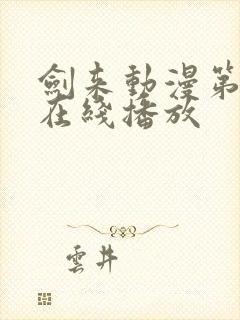 劍来動漫第
在綫播放
雲井